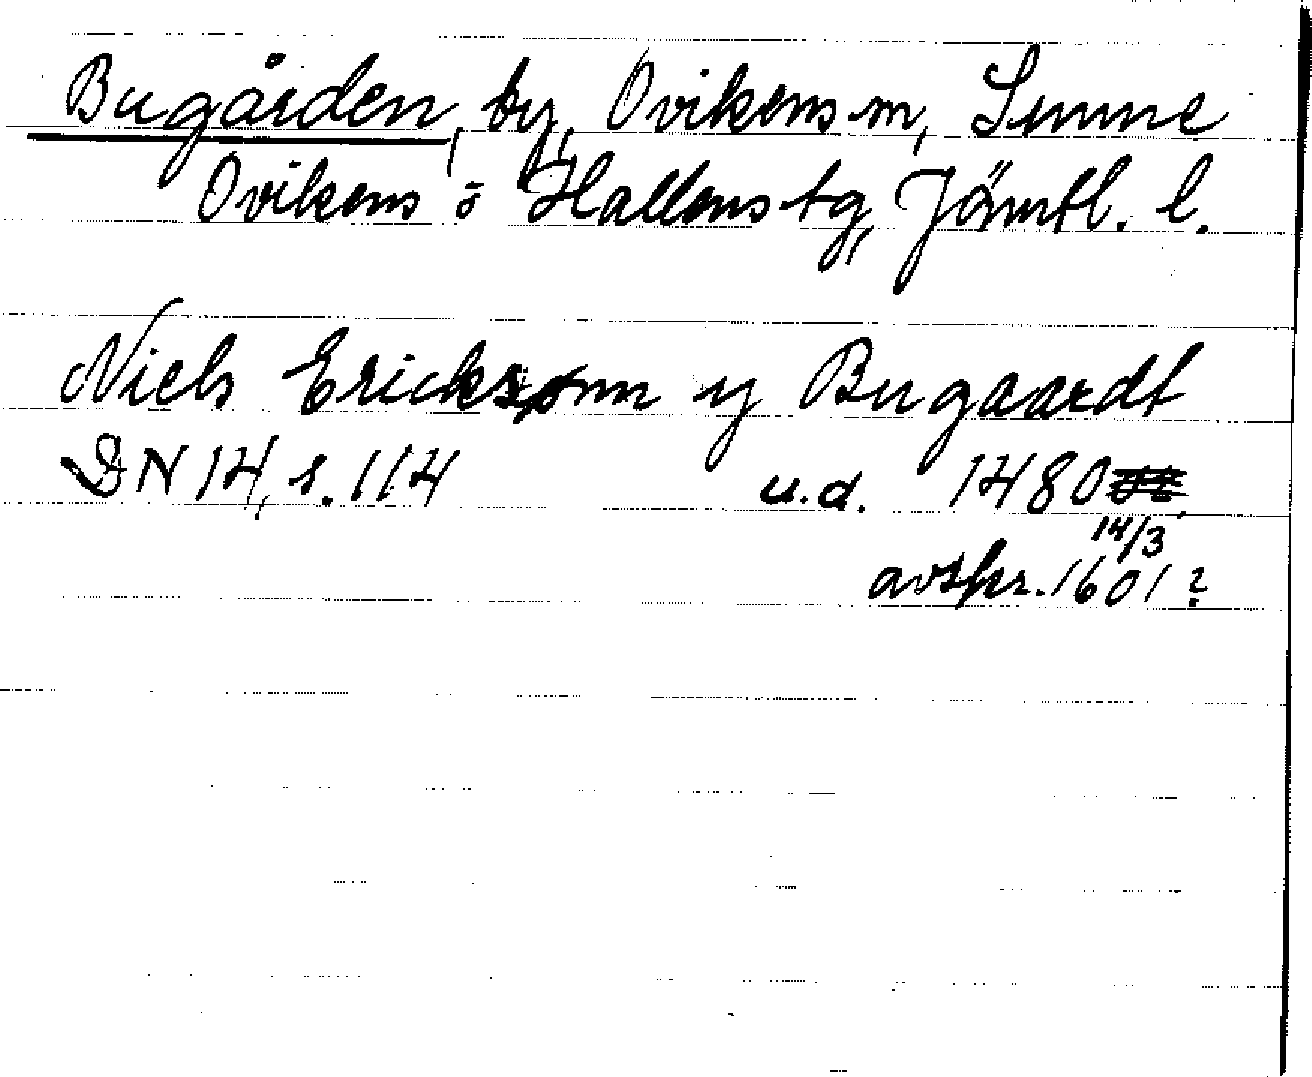 Bugården, by, Ovikens sn, Sunne
Ovikens o Hallens tg, Jämtl. l.
Niels Ericksønn y Bugaardt
DN 14, s. 114 u.d. 1480
14/3
avskr. 1601?